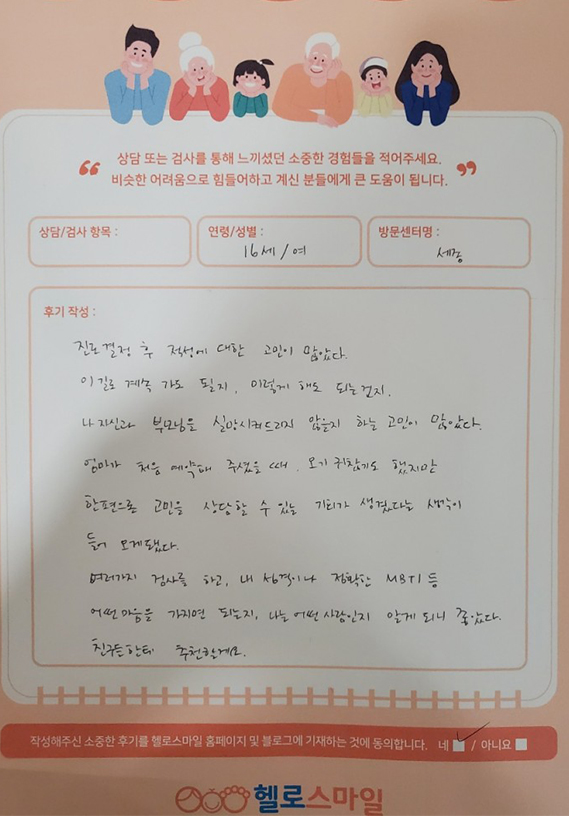 상담 또는 검사를 통해 느끼셨던 소중한 경험들을 적어주세요.
비슷한 어려움으로 힘들어하고 계신 분들에게 큰 도움이 됩니다.
상담/검사 항목 :
연령/성별 :
16세 / 여
방문센터명 :
세종
후기 작성 :
진로결정 후 적성에 대한 고민이 많았다.
이 길로 계속 가도 될지, 이렇게 해도 되는건지.
나 자신과 부모님을 실망시켜드리지 않을지 하는 고민이 많았다.
엄마가 처음 예약해 주셨을 때, 오기 귀찮기도 했지만
한편으론 고민을 상담할 수 있는 기회가 생겼다는 생각이
들어 오게됐다.
여러가지 검사를 하고, 내 성격이나 정확한 MBTI 등
어떤 마음을 가지면 되는지, 나는 어떤 사람인지 알게 되니 좋았다.
친구들한테 추천할게요.
작성해주신 소중한 후기를 헬로스마일 홈페이지 및 블로그에 기재하는 것에 동의합니다. 네 / 아니요
헬로스마일